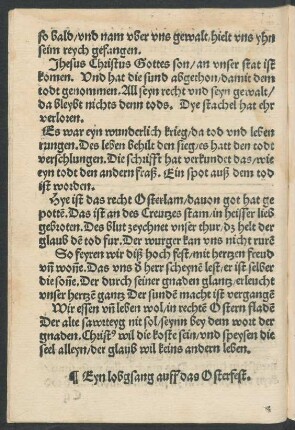 so bald/vnd nam vber vns gewalt/hielt vns yhn
seim reych gefangen.
Jhesus Christus Gottes son/an vnser stat ist
komen. Vnd hat die sund abgethon/damit dem
todt genommen. All seyn recht vnd seyn gewalt/
da bleybt nichts denn tods. Dye stachel hat ehr
verloren.
Es war eyn wunderlich krieg/da tod vnd leben
rungen. Des leben behilt den sieg/es hatt den todt
verschlungen. Die schrifft hat verkundet das/wie
eyn todt den andern fraß. Ein spot auß dem tod
ist worden.
Hye ist das recht Osterlam/dauon got hat ge
potten̄. Das ist an des Creutzes stam/in heisser lieb
gebroten. Des blut zeychnet vnser thur/dz helt der
glaub dē tod fur. Der wurger kan vns nicht rurē
So feyren wir diß hoch fest/mit hertzen freud
vn̄ won̄e. Das vns d̕ herr scheynē lest/er ist selber
die son̄e. Der durch seiner gnaden glantz/erleucht
vnser hertzē gantz Der sundē macht ist vergangē
Wir essen vn̄ leben wol/in rechtē Ostern fladē
Der alte sawrteyg nit sol/seynn bey dem wort der
gnaden. Christ⁹ wil die koste sein/vnd speysen die
seel alleyn/der glaub wil keins andern leben.
¶ Eyn lobgsang auff das Osterfest.